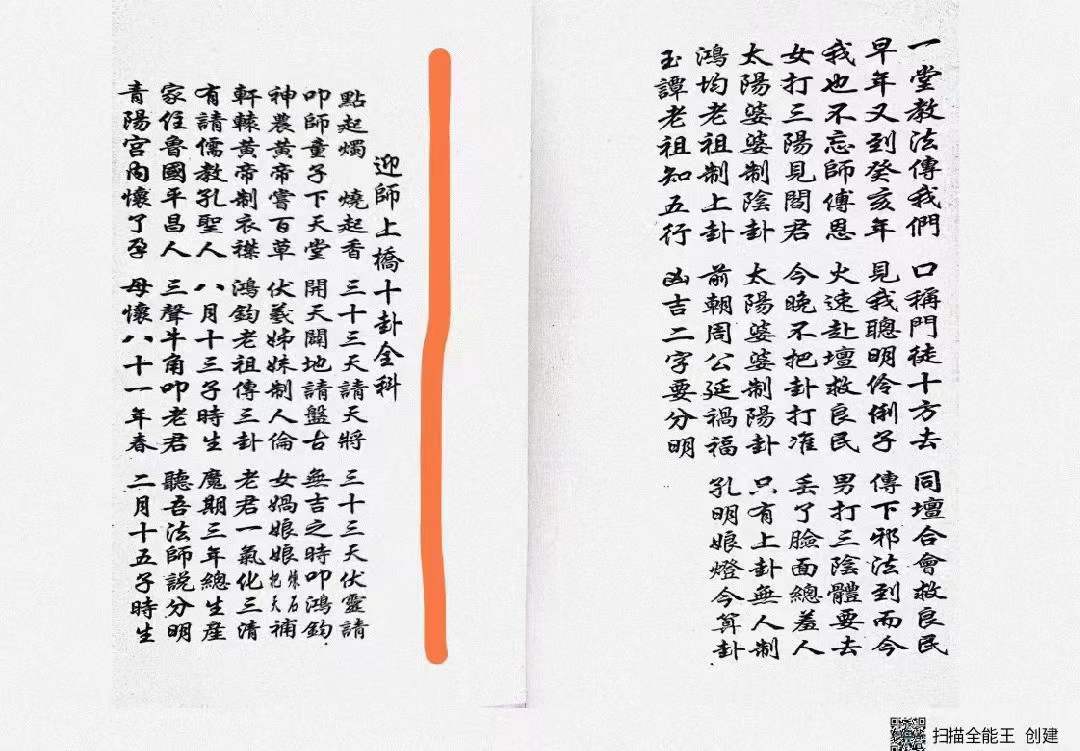 一堂教法傳我們 口稱門徒十方去 同壇合會救良民
早年又到癸亥年 見我聰明伶俐子 傳下邪法到而今
我也不忘師傅恩 火速赴壇救良民 男打三陰體要去
女打三陽見閻君 今晚不把卦打准 丟了臉面總羞人
太陽婆婆制陰卦 太陽婆婆制陽卦 只有上卦無人制
鴻均老祖制上卦 前朝周公延禍福 孔明娘燈今算卦
玉譚老祖知五行 凶吉二字要分明
迎師上橋十卦全科
點起燭 燒起香 三十三天請天將 三十三天伏靈請
叩師童子下天堂 開天闢地請盤古 無吉之時叩鴻鈞
神農黃帝嘗百草 伏羲姊妹制人倫 女媧娘娘煉石把天補
軒轅黃帝制衣襟 鴻鈞老祖傳三卦 老君一氣化三清
有請儒教孔聖人 八月十三子時生 魔期三年總生產
家住魯國平昌人 三聲牛角叩老君 聽吾法師說分明
青陽宮內懷了孕 母懷八十一年春 二月十五子時生
扫描全能王 创建